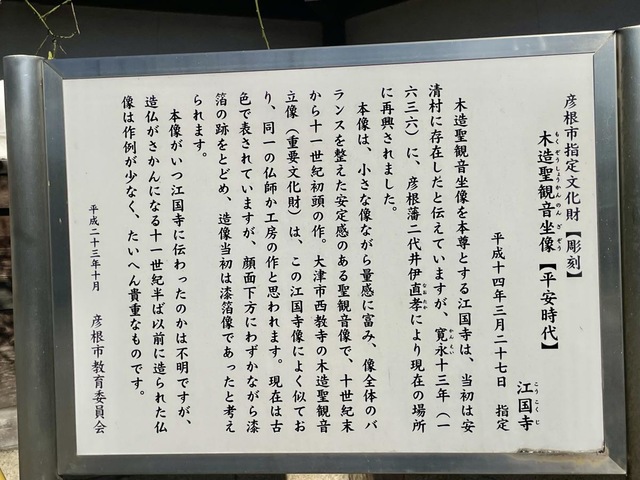 彦根市指定文化財【彫刻】
木造聖観音坐像【平安時代】
もくぞうしょうかんのんざぞう
江国寺
こうこくじ
平成十四年三月二十七日 指定
木造聖観音坐像を本尊とする江国寺は、当初は安
清村に存在したと伝えていますが、寛永十三年（一
かんえい
六三六）に、彦根藩二代井伊直孝により現在の場所
なおたか
に再興されました。
本像は、小さな像ながら量感に富み、像全体のバ
ランスを整えた安定感のある聖観音像で、十世紀末
から十一世紀初頭の作。大津市西教寺の木造聖観音
立像（重要文化財）は、この江国寺像によく似てお
り、同一の仏師か工房の作と思われます。現在は古
色で表されていますが、顔面下方にわずかながら漆
箔の跡をとどめ、造像当初は漆箔像であったと考え
られます。
本像がいつ江国寺に伝わったのかは不明ですが、
造仏がさかんになる十一世紀半ば以前に造られた仏
像は作例が少なく、たいへん貴重なものです。
平成二十三年十月 彦根市教育委員会